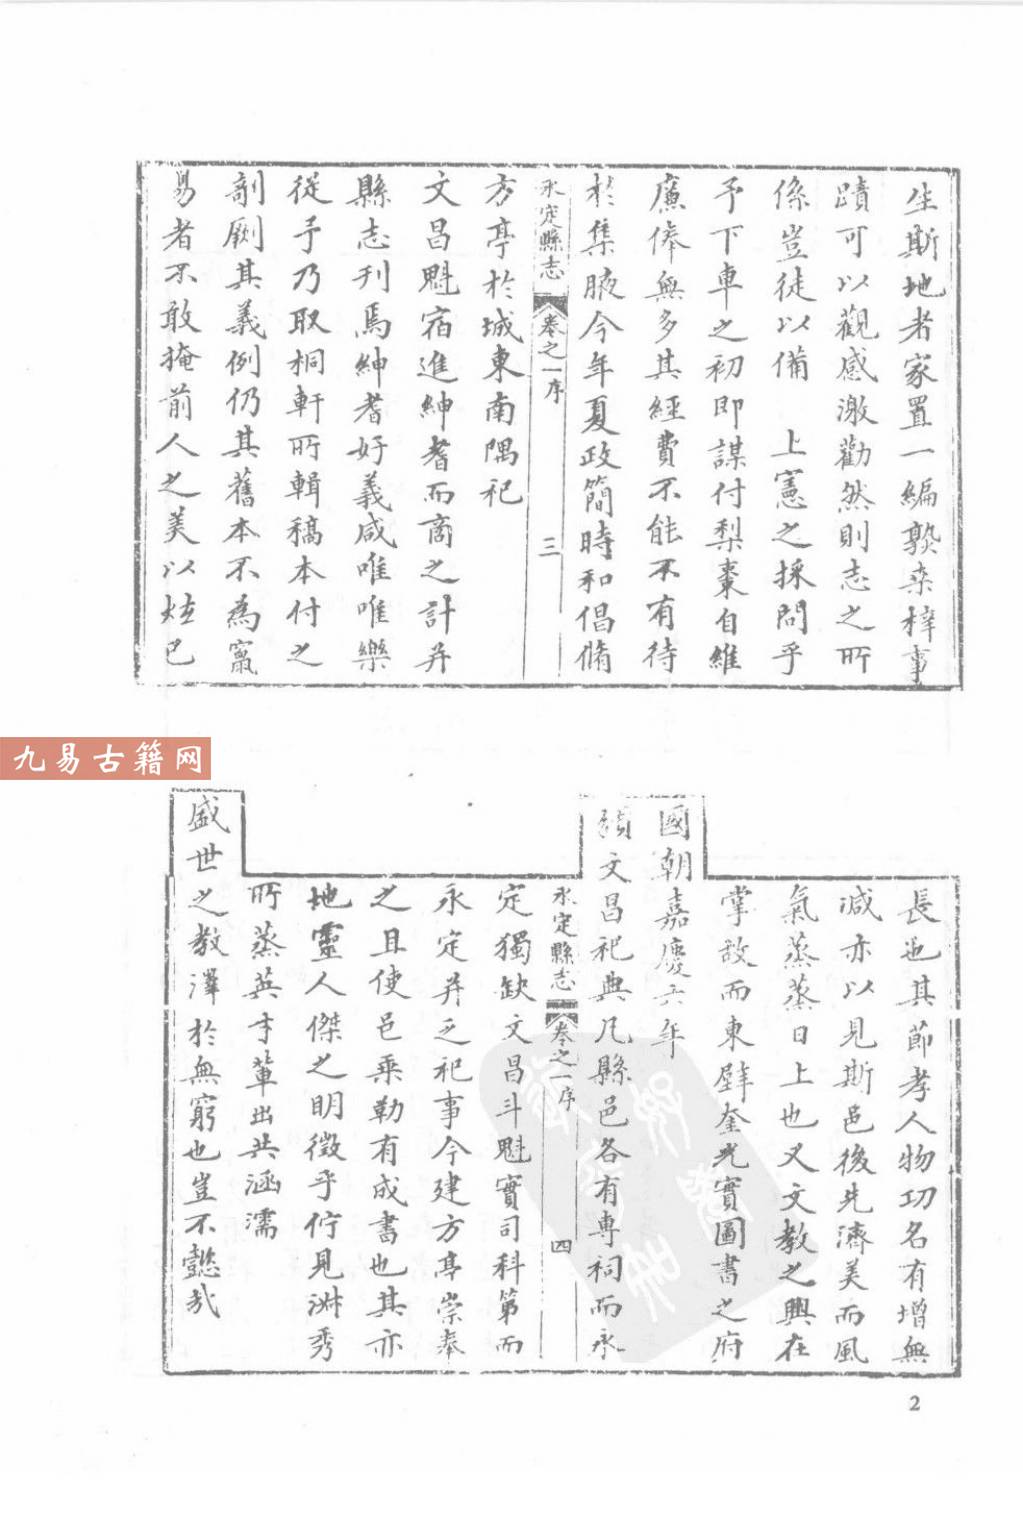 生斯地者家置一編敦桑梓事
蹟可以觀感激勸然則志之所
係豈徒以備 上憲之採問乎
予下車之初即謀付梨棗自維
廉俸無多其經費不能不有待
於集腋今年夏政簡時和倡脩
永定縣志 卷之一序 三
方亭於城東南隅祀
文昌魁宿進紳耆而商之計并
縣志刊焉紳耆好義咸唯唯樂
從予乃取桐軒所輯稿本付之
剞劂其義例仍其舊本不為竄
易者不敢掩前人之美以炫己
九易古籍网
長也其節孝人物功名有增無
減亦以見斯邑後先濟美而風
氣蒸蒸日上也又文教之興在
掌故而東壁奎光實圖書之府
國朝嘉慶六年
頒文昌祀典凡縣邑各有專祠而永
永定縣志 卷之一序 四
定獨缺 文昌斗魁實司科第而
永定并乏祀事今建方亭崇奉
之且使邑乘勒有成書也其亦
地靈人傑之明徵乎佇見淑秀
所蒸英才輩出共涵濡
盛世之教澤於無窮也豈不懿哉
2